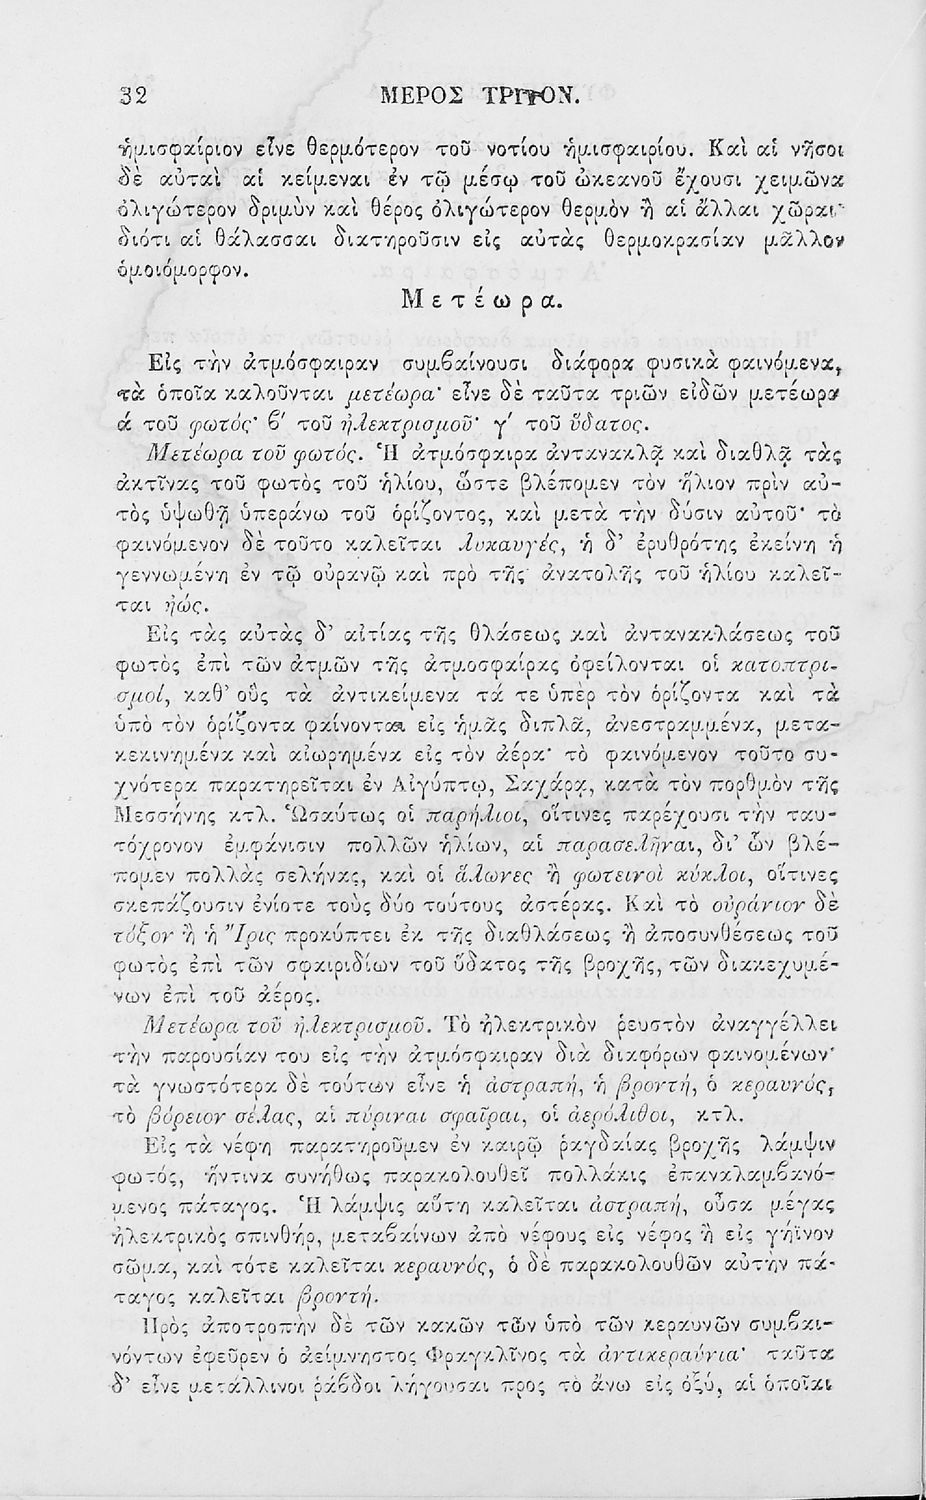 32 ΜΕΡΟΣ ΤΡΙΤΟΝ.
ἡμισφαίριον εἶνε θερμότερον τοῦ νοτίου ἡμισφαιρίου. Καὶ αἱ νῆσοι
δὲ αὐταὶ αἱ κείμεναι ἐν τῷ μέσῳ τοῦ ὠκεανοῦ ἔχουσι χειμῶνα
ὀλιγώτερον δριμὺν καὶ θέρος ὀλιγώτερον θερμὸν ἢ αἱ ἄλλαι χῶραι·
διότι αἱ θάλασσαι διατηροῦσιν εἰς αὐτὰς θερμοκρασίαν μᾶλλον
ὁμοιόμορφον.
Μετέωρα.
Εἰς τὴν ἀτμόσφαιραν συμβαίνουσι διάφορα φυσικὰ φαινόμενα,
τὰ ὁποῖα καλοῦνται μετέωρα· εἶνε δὲ ταῦτα τριῶν εἰδῶν μετέωρα
ά τοῦ φωτός· β´ τοῦ ἠλεκτρισμοῦ· γ´ τοῦ ὕδατος.
Μετέωρα τοῦ φωτός. Ἡ ἀτμόσφαιρα ἀντανακλᾷ καὶ διαθλᾷ τὰς
ἀκτῖνας τοῦ φωτὸς τοῦ ἡλίου, ὥστε βλέπομεν τὸν ἥλιον πρὶν αὐ-
τὸς ὑψωθῇ ὑπεράνω τοῦ ὁρίζοντος, καὶ μετὰ τὴν δύσιν αὐτοῦ· τὸ
φαινόμενον δὲ τοῦτο καλεῖται λυκαυγές, ἡ δ' ἐρυθρότης ἐκείνη ἡ
γεννωμένη ἐν τῷ οὐρανῷ καὶ πρὸ τῆς ἀνατολῆς τοῦ ἡλίου καλεῖ-
ται ἠώς.
Εἰς τὰς αὐτὰς δ' αἰτίας τῆς θλάσεως καὶ ἀντανακλάσεως τοῦ
φωτὸς ἐπὶ τῶν ἀτμῶν τῆς ἀτμοσφαίρας ὀφείλονται οἱ κατοπτρι-
σμοί, καθ' οὓς τὰ ἀντικείμενα τά τε ὑπὲρ τὸν ὁρίζοντα καὶ τὰ
ὑπὸ τὸν ὁρίζοντα φαίνονται εἰς ἡμᾶς διπλᾶ, ἀνεστραμμένα, μετα-
κεκινημένα καὶ αἰωρημένα εἰς τὸν ἀέρα· τὸ φαινόμενον τοῦτο συ-
χνότερα παρατηρεῖται ἐν Αἰγύπτῳ, Σαχάρᾳ, κατὰ τὸν πορθμὸν τῆς
Μεσσήνης κτλ. Ὡσαύτως οἱ παρήλιοι, οἵτινες παρέχουσι τὴν ταυ-
τόχρονον ἐμφάνισιν πολλῶν ἡλίων, αἱ παρασελῆναι, δι' ὧν βλέ-
πομεν πολλὰς σελήνας, καὶ οἱ ἅλωνες ἢ φωτεινοὶ κύκλοι, οἵτινες
σκεπάζουσιν ἐνίοτε τοὺς δύο τούτους ἀστέρας. Καὶ τὸ οὐράνιον δὲ
τόξον ἢ ἡ Ἴρις προκύπτει ἐκ τῆς διαθλάσεως ἢ ἀποσυνθέσεως τοῦ
φωτὸς ἐπὶ τῶν σφαιριδίων τοῦ ὕδατος τῆς βροχῆς, τῶν διακεχυμέ-
νων ἐπὶ τοῦ ἀέρος.
Μετέωρα τοῦ ἠλεκτρισμοῦ. Τὸ ἠλεκτρικὸν ῥευστὸν ἀναγγέλλει
τὴν παρουσίαν του εἰς τὴν ἀτμόσφαιραν διὰ διαφόρων φαινομένων·
τὰ γνωστότερα δὲ τούτων εἶνε ἡ ἀστραπή, ἡ βροντή, ὁ κεραυνός,
τὸ βόρειον σέλας, αἱ πύριναι σφαῖραι, οἱ ἀερόλιθοι, κτλ.
Εἰς τὰ νέφη παρατηροῦμεν ἐν καιρῷ ῥαγδαίας βροχῆς λάμψιν
φωτός, ἥντινα συνήθως παρακολουθεῖ πολλάκις ἐπαναλαμβανό-
μενος πάταγος. Ἡ λάμψις αὕτη καλεῖται ἀστραπή, οὖσα μέγας
ἠλεκτρικὸς σπινθήρ, μεταβαίνων ἀπὸ νέφους εἰς νέφος ἢ εἰς γήϊνον
σῶμα, καὶ τότε καλεῖται κεραυνός, ὁ δὲ παρακολουθῶν αὐτὴν πά-
ταγος καλεῖται βροντή.
Πρὸς ἀποτροπὴν δὲ τῶν κακῶν τῶν ὑπὸ τῶν κεραυνῶν συμβαι-
νόντων ἐφεῦρεν ὁ ἀείμνηστος Φραγκλῖνος τὰ ἀντικεραύνια· ταῦτα
δ' εἶνε μετάλλινοι ῥάβδοι λήγουσαι πρὸς τὸ ἄνω εἰς ὀξύ, αἱ ὁποῖαι